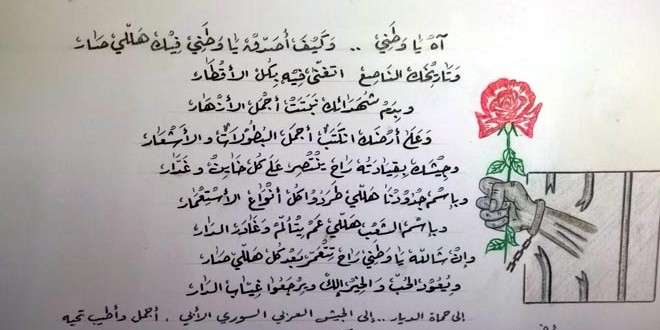 آهٌ يا وطني .. وكيف أصدقُ يا وطني فيك هاللي صار
وتاريخك الناصع اتغنّى فيه بكل الأقطار
وبدم شهدائك نبتت أجمل الأزهار
وعلى أرضك انكتب أجمل البطولات والأشعار
وجيشك بقيادته راح ينتصر على كل خاين وغدّار
وبإسم جدودنا هللي طردوا كل أنواع الأستعمار
وبإسم الشعب هللي عم يتألم وغادر الدار
وإن شالله يا وطني راح تتعمّر بعد كل هللي صار
ويعود الحب والخير إلك ويرجعوا غيّاب الدار
إلى حماة الديار .. إلى الجيش العربي السوري الأبي . أجمل وأطيب تحيه